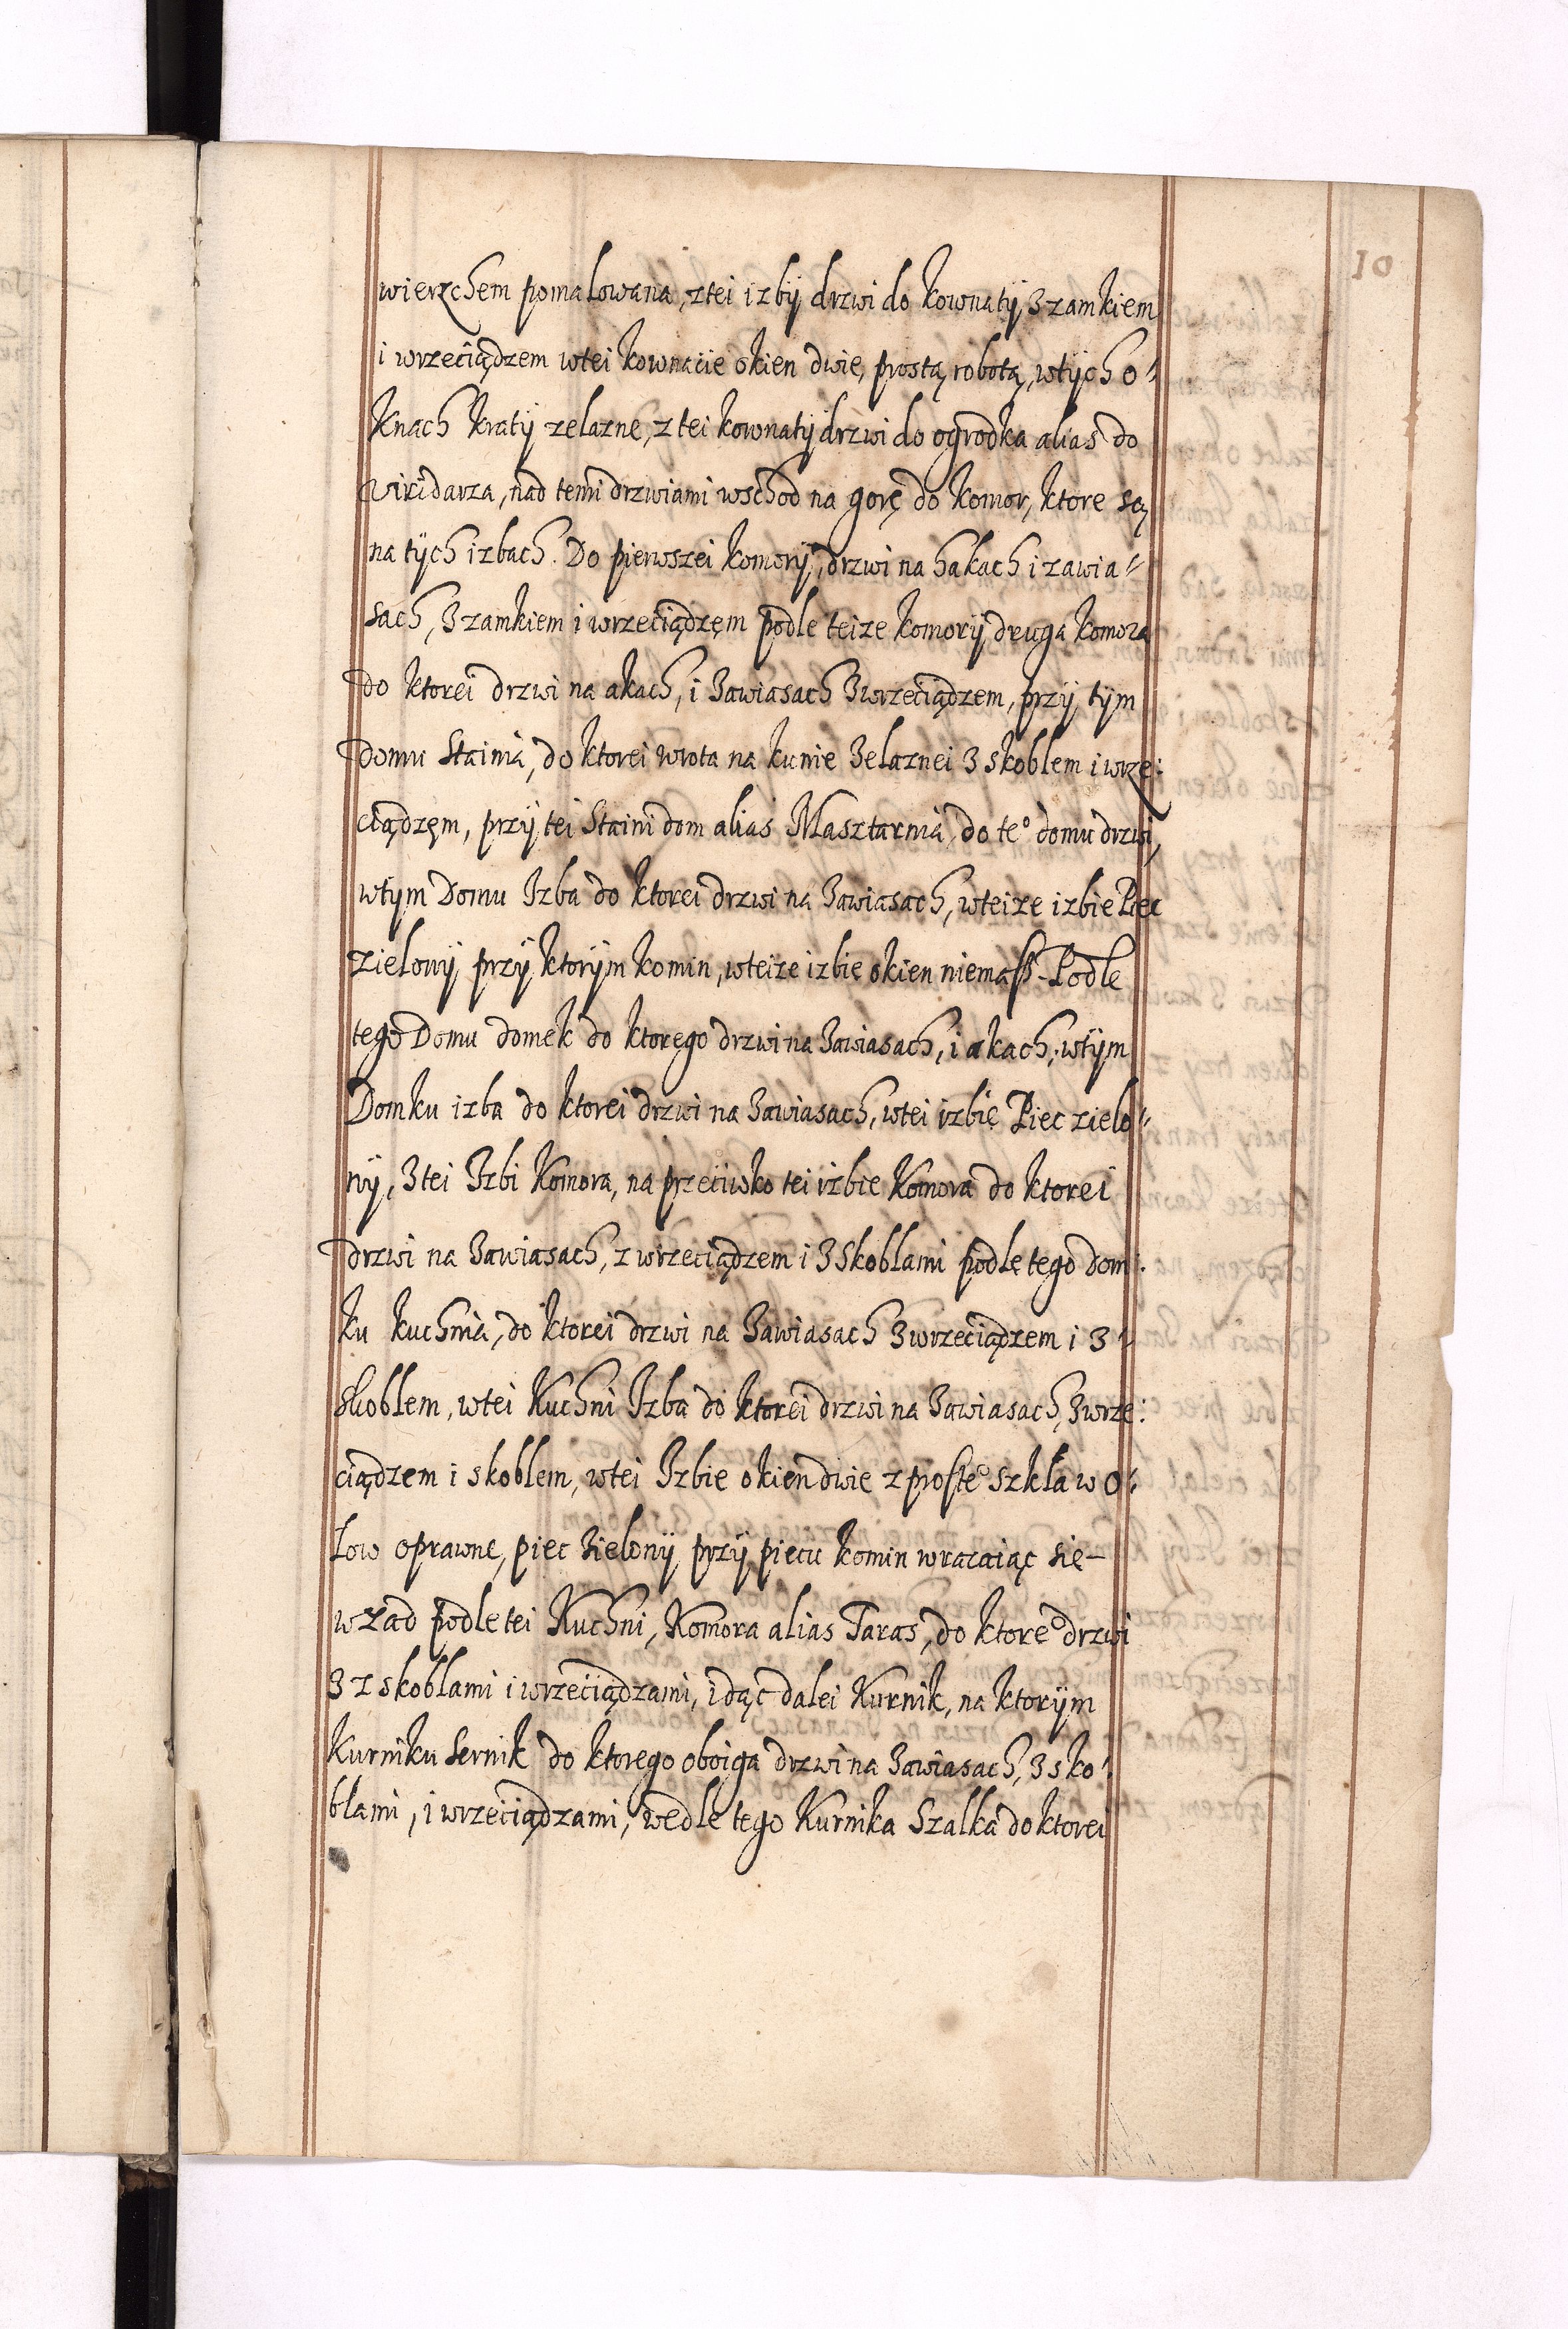 10
wierzchem pomalowana, z tei izbÿ drzwi do kownatÿ z zamkiem
i wrzeciądzem wtei kownacie okien dwie, prostą robotą, wtÿch o⸗
knach kratÿ zelazne, z tei kownatÿ drzwi do ogrodka alias do
viridarza, nad temi drzwiami wschod na gorę do komor, ktore są
na tÿch izbach. Do pierwszei komorÿ, drzwi na hakach i zawia⸗
sach, z zamkiem i wrzeciądzęm podle teize komorÿ druga komora
do ktorei drzwi na akach, i zawiasach z wrzeciądzem, przÿ tÿm
domu Stainia, do ktorei wrota na kunie zelaznei z skoblem i wrze:
ciądzęm, przÿ tei Staini dom alias Masztarnia, do te° domu drzwi,
wtÿm Domu Izba do ktorei drzwi na zawiasach, wteize izbie Piec
zielowÿ przÿ ktorÿm komin, wteize izbie okien niemasz. Podle
tego Domu domek do ktorego drzwi na zawiasach, i akach, wtÿm
Domku izba do ktorei drzwi na zawiasach, wtei izbie Piec zielo⸗
nÿ, z tei Izbi Komora, na przeciwko tei izbie Komora do ktorei
drzwi na zawiasach, z wrzeciądzem i z Skoblami podle tego dom:
ku kuchnia, do ktorei drzwi na zawiasach z wrzeciądzem i z⸗
skoblem, wtei Kuchni Izba do ktorei drzwi na zawiasach, z wrze:
ciądzem i skoblem, wtei Izbie okien dwie z proste° szkła w o⸗
łow oprawne, piec zielonÿ przÿ piecu komin wracaiąc się –
wzad podle tei Kuchni, Komora alias Taras, do ktore° drzwi
3 z skoblami i wrzeciądzami, idąc dalei Kurnik, na ktorÿm
Kurniku Sernik do ktorego oboiga drzwi na zawiasach, z sko⸗
blami, i wrzeciądzami, wedle tego Kurnika Szalka do ktorei